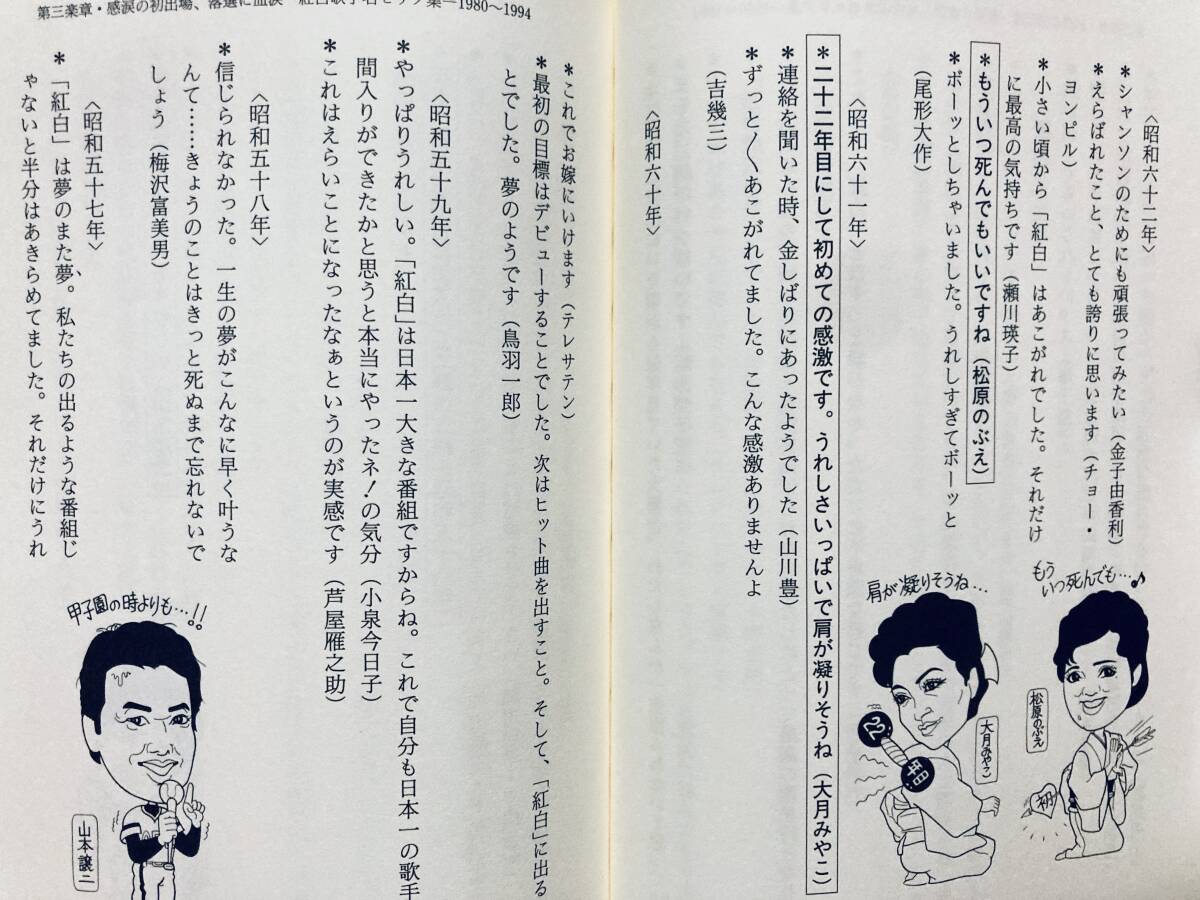 第三楽章・感涙の初出場、落選に血涙 紅白歌手名セリフ集―1980〜1994
〈昭和六十二年〉
＊シャンソンのためにも頑張ってみたい（金子由香利）
＊えらばれたこと、とても誇りに思います（チョー・
ヨンピル）
＊小さい頃から「紅白」はあこがれでした。それだけ
に最高の気持ちです（瀬川瑛子）
＊もういつ死んでもいいですね（松原のぶえ）
＊ボーッとしちゃいました。うれしすぎてボーッと
（尾形大作）
〈昭和六十一年〉
＊二十二年目にして初めての感激です。うれしさいっぱいで肩が凝りそうね（大月みやこ）
＊連絡を聞いた時、金しばりにあったようでした（山川豊）
＊ずっと〳〵あこがれてました。こんな感激ありませんよ
（吉幾三）
〈昭和六十年〉
もう
いつ死んでも…♪
松原のぶえ
初
肩が凝りそうね…
大月みやこ
22
年目
＊これでお嫁にいけます（テレサテン）
＊最初の目標はデビューすることでした。次はヒット曲を出すこと。そして、「紅白」に出る
とでした。夢のようです（鳥羽一郎）
〈昭和五十九年〉
＊やっぱりうれしい。「紅白」は日本一大きな番組ですからね。これで自分も日本一の歌手
間入りができたかと思うと本当にやったネ！の気分（小泉今日子）
＊これはえらいことになったなぁというのが実感です（芦屋雁之助）
〈昭和五十八年〉
＊信じられなかった。一生の夢がこんなに早く叶うな
んて……きょうのことはきっと死ぬまで忘れないで
しょう（梅沢富美男）
〈昭和五十七年〉
＊「紅白」は夢のまた夢。私たちの出るような番組じ
ゃないと半分はあきらめてました。それだけにうれ
甲子園の時よりも…!!
山本譲二